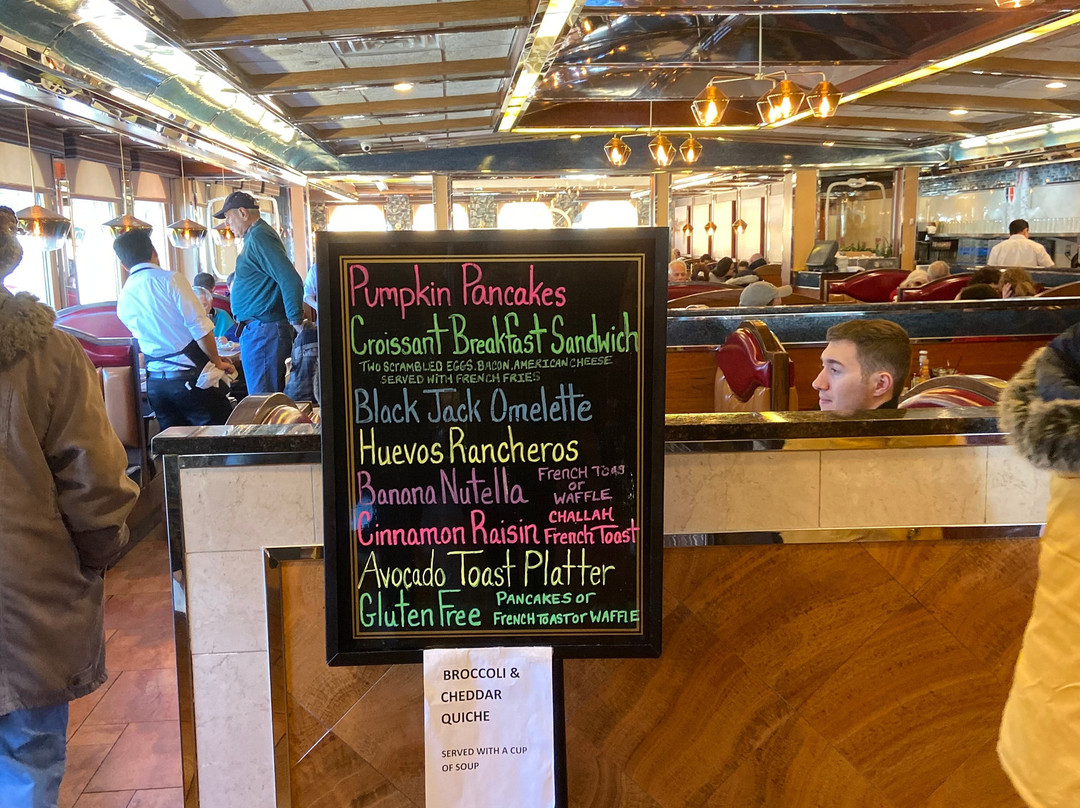 Pumpkin Pancakes
Croissant Breakfast Sandwich
TWO SCRAMBLED EGGS, BACON, AMERICAN CHEESE
SERVED WITH FRENCH FRIES
Black Jack Omelette
Huevos Rancheros
Banana Nutella FRENCH TOAS
or
WAFFLE
Cinnamon Raisin CHALLAH
FRENCH TOAST
Avocado Toast Platter
Gluten Free PANCAKES OR
FRENCH TOAST OR WAFFLE
BROCCOLI &
CHEDDAR
QUICHE
SERVED WITH A CUP
OF SOUP